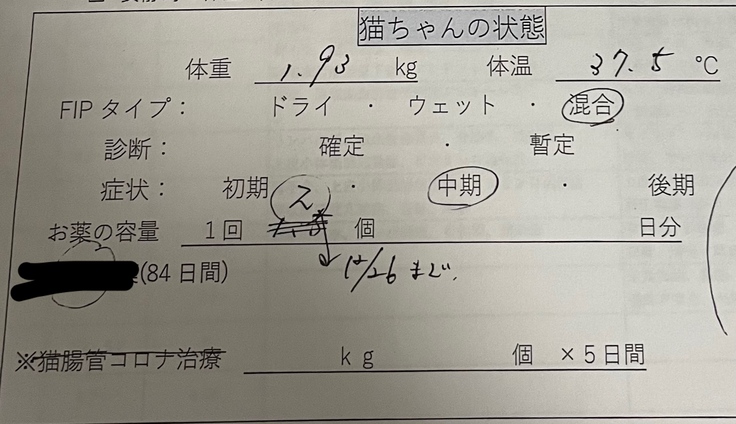 猫ちゃんの状態
体重 1.93 kg 体温 37.5 ℃
FIPタイプ： ドライ ・ ウェット ・ 混合
診断： 確定 ・ 暫定
症状： 初期 ・ 中期 ・ 後期
お薬の容量 1回 2 個 日分
(84日間) 12/26まで.
※猫腸管コロナ治療 kg 個 ×5日間